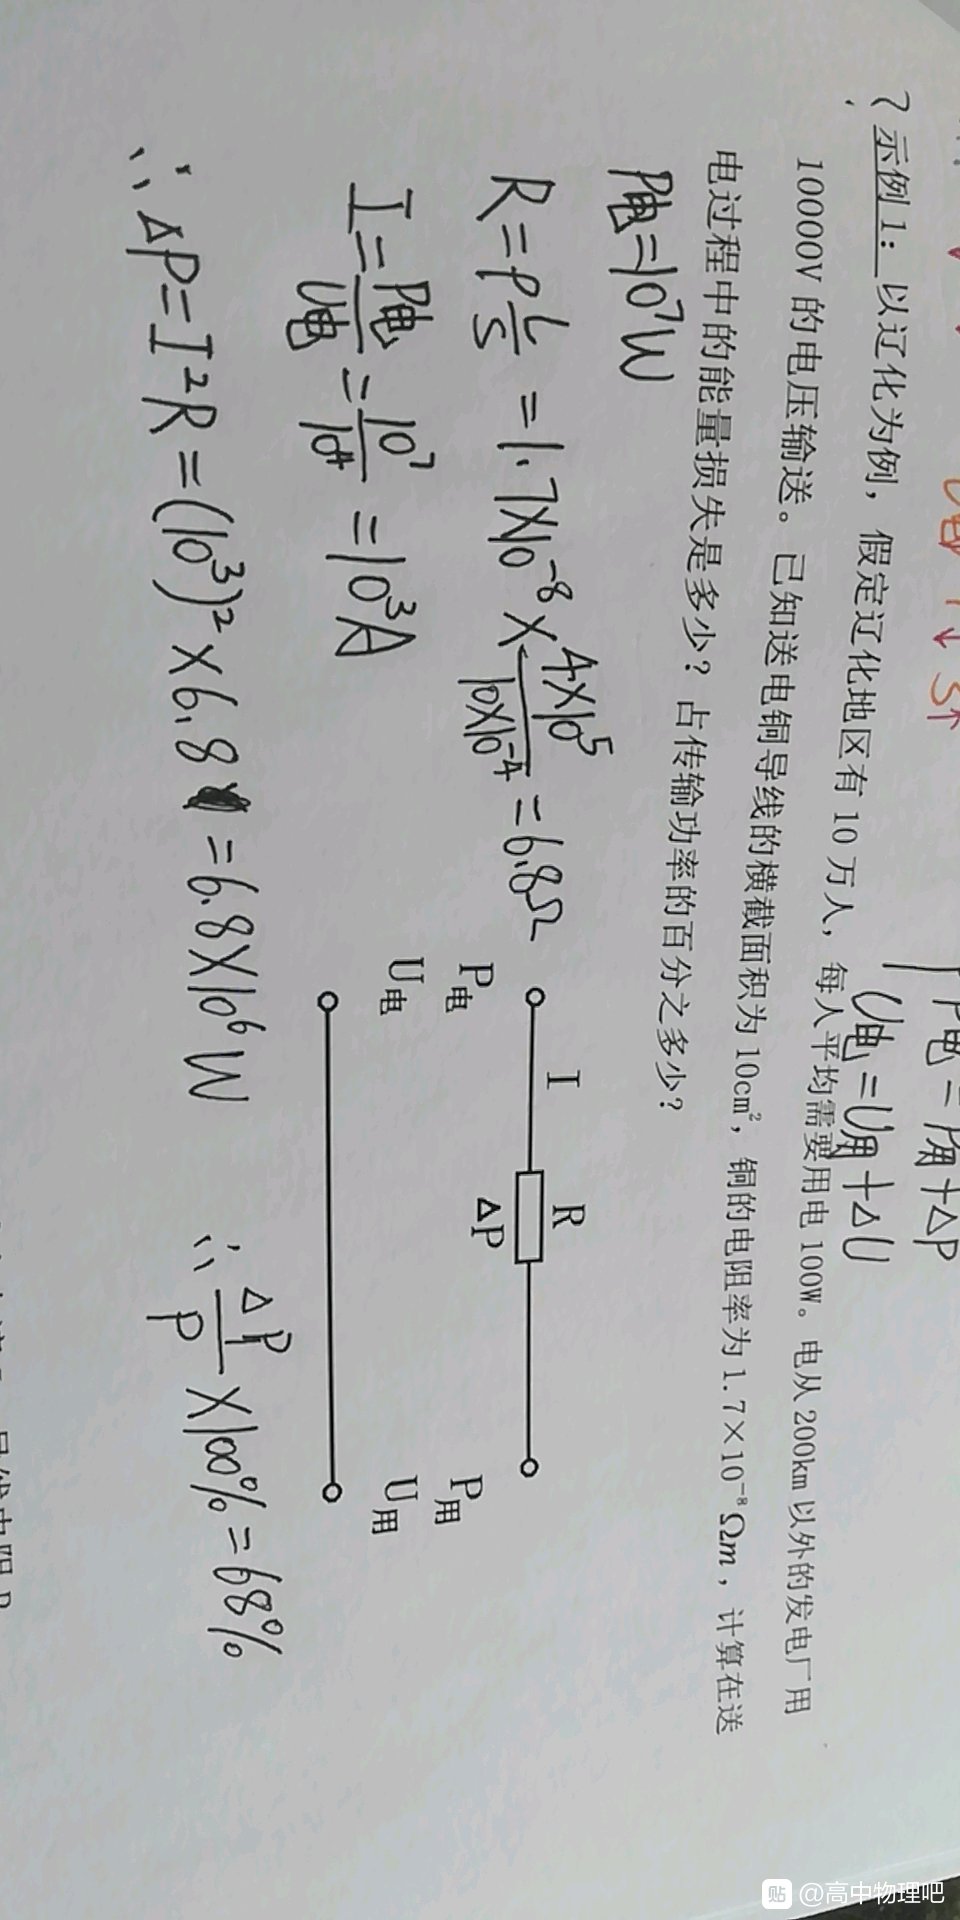 U电 ↑↓ S↑
P电=P用+ΔP
U电=U用+ΔU
示例1：以辽化为例，假定辽化地区有10万人，每人平均需要用电100W。电从200km以外的发电厂用
10000V的电压输送。已知送电铜导线的横截面积为10cm²，铜的电阻率为1.7×10⁻⁸Ωm，计算在送
电过程中的能量损失是多少？占传输功率的百分之多少？
P电=10⁷W
R=ρL/S=1.7×10⁻⁸×4×10⁵/10×10⁻⁴=6.8Ω
I=P电/U电=10⁷/10⁴=10³A
I R
ΔP
P电 P用
U电 U用
∴ΔP=I²R=(10³)²×6.8=6.8×10⁶W
∴ΔP/P×100%=68%
贴 @高中物理吧